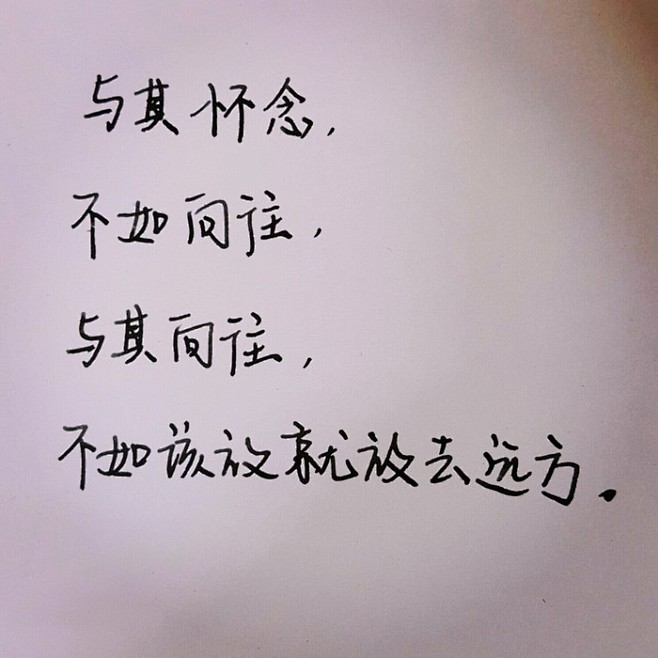 与其怀念，
不如向往，
与其向往，
不如该放就放去远方。